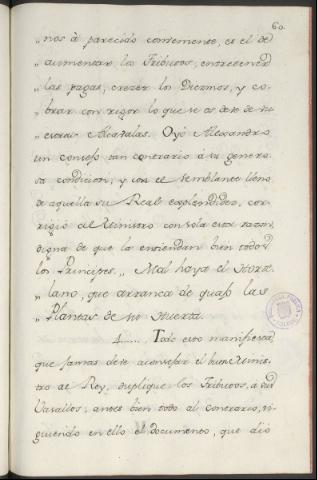 60.
„ nos à parecido combeniente, es el de
„ aumentar los Tributos, entretener
„ las pagas, crecer los Diezmos, y co-
„ brar con rigor lo que se os debe de nu
„ estras Alcabalas. Oyó Alexandro
un consejo tan contrario á su genero-
sa condicion, y con el semblante lleno
de aquella su Real esplendidez, cor-
rigió al Ministro con sola esta razon,
digna de que la entiendan bien todos
los Principes. „ Mal haya el Horte
„ lano, que arranca de quajo las
„ Plantas de su Huerta.
4..... Todo esto manifiesta,
que jamas debe aconsejar el buen Minis-
tro al Rey, duplique los Tributos, a sus
Vasallos; antes bien todo al contrario, si-
guiendo en ello el documento, que dió